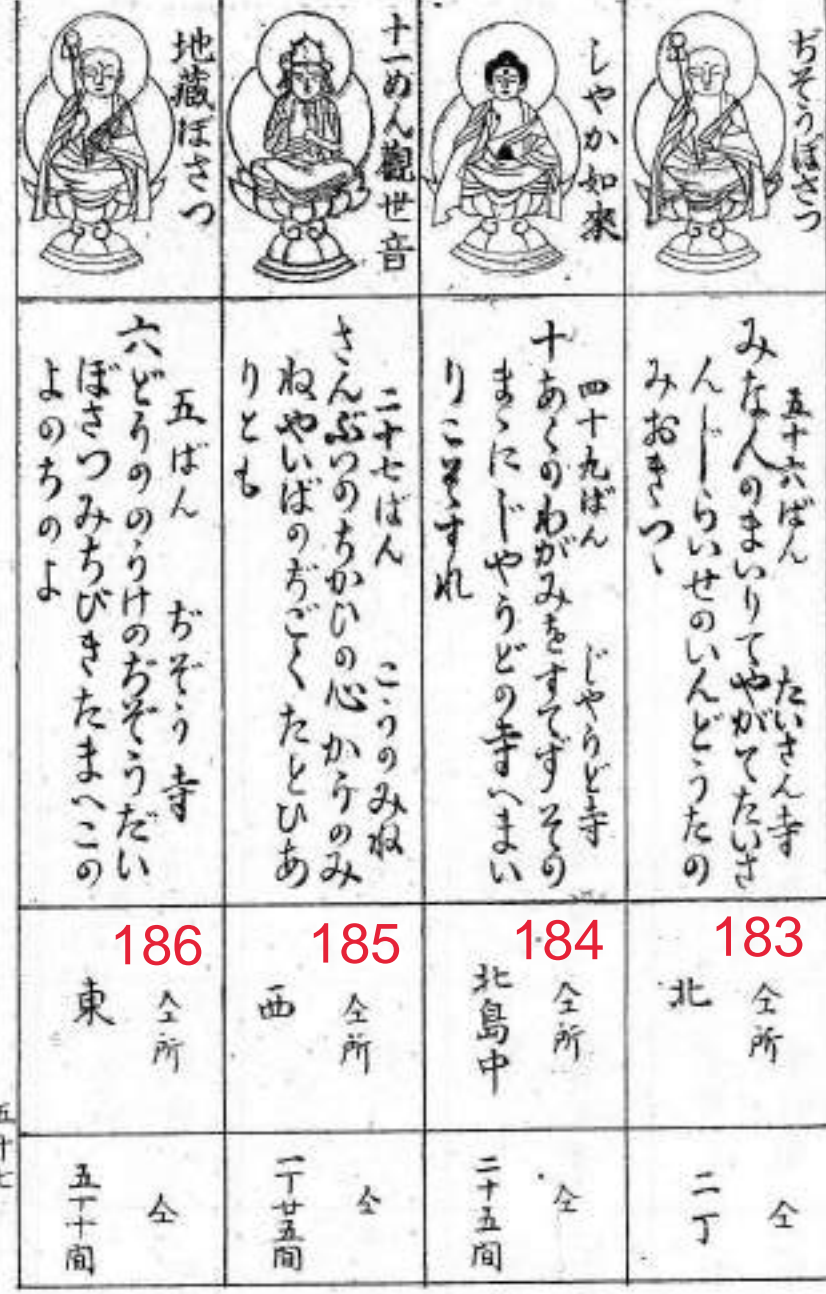 ぢそうぼさつ
五十六ばん たいさん寺
みな人のまいりてやがてたいさ
んじらいせのいんどうたの
みおきつゝ
183
仝所
北
仝
二丁
しやか如來
四十九ばん じやうど寺
十あくのわがみをすてずその
まゝにじやうどの寺へまい
りこそすれ
184
仝所
北島中
仝
二十五間
十一めん觀世音
二十七ばん こうのみね
さんぶつのちかひの心かうのみ
ねやいばのぢごくたとひあ
りとも
185
仝所
西
仝
一丁廿五間
地藏ぼさつ
五ばん ぢぞう寺
六どうののうけのぢぞうだい
ぼさつみちびきたまへこの
よのちのよ
186
仝所
東
仝
五丁十間
五十七